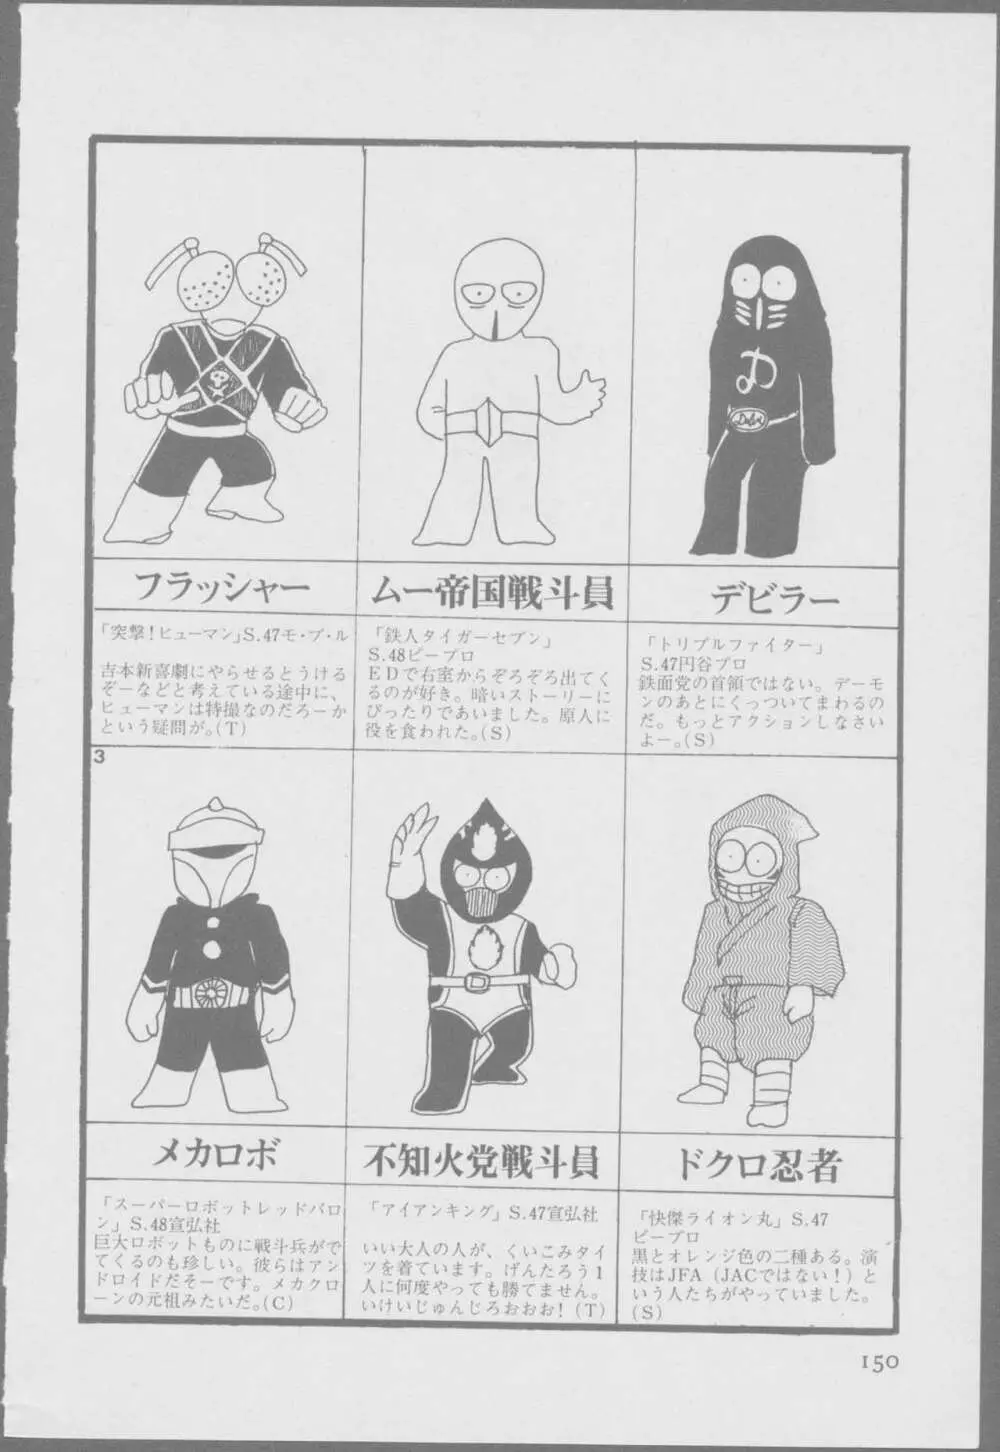 フラッシャー
「突撃！ヒューマン」S.47モ・ブ・ル
吉本新喜劇にやらせるとうける
ぞーなどと考えている途中に、
ヒューマンは特撮なのだろーか
という疑問が。(T)
ムー帝国戦斗員
「鉄人タイガーセブン」
S.48ピープロ
EDで右室からぞろぞろ出てく
るのが好き。暗いストーリーに
ぴったりであいました。原人に
役を食われた。(S)
デビラー
「トリプルファイター」
S.47円谷プロ
鉄面党の首領ではない。デーモ
ンのあとにくっついてまわるの
だ。もっとアクションしなさい
よー。(S)
3
メカロボ
「スーパーロボットレッドバロ
ン」S.48宣弘社
巨大ロボットものに戦斗兵がで
てくるのも珍しい。彼らはアン
ドロイドだそーです。メカクロ
ーンの元祖みたいだ。(C)
不知火党戦斗員
「アイアンキング」S.47宣弘社
いい大人の人が、くいこみタイ
ツを着ています。げんたろう1
人に何度やっても勝てません。
いけいじゅんじろおおお！(T)
ドクロ忍者
「快傑ライオン丸」S.47
ピープロ
黒とオレンジ色の二種ある。演
技はJFA（JACではない！）と
いう人たちがやっていました。
(S)
150